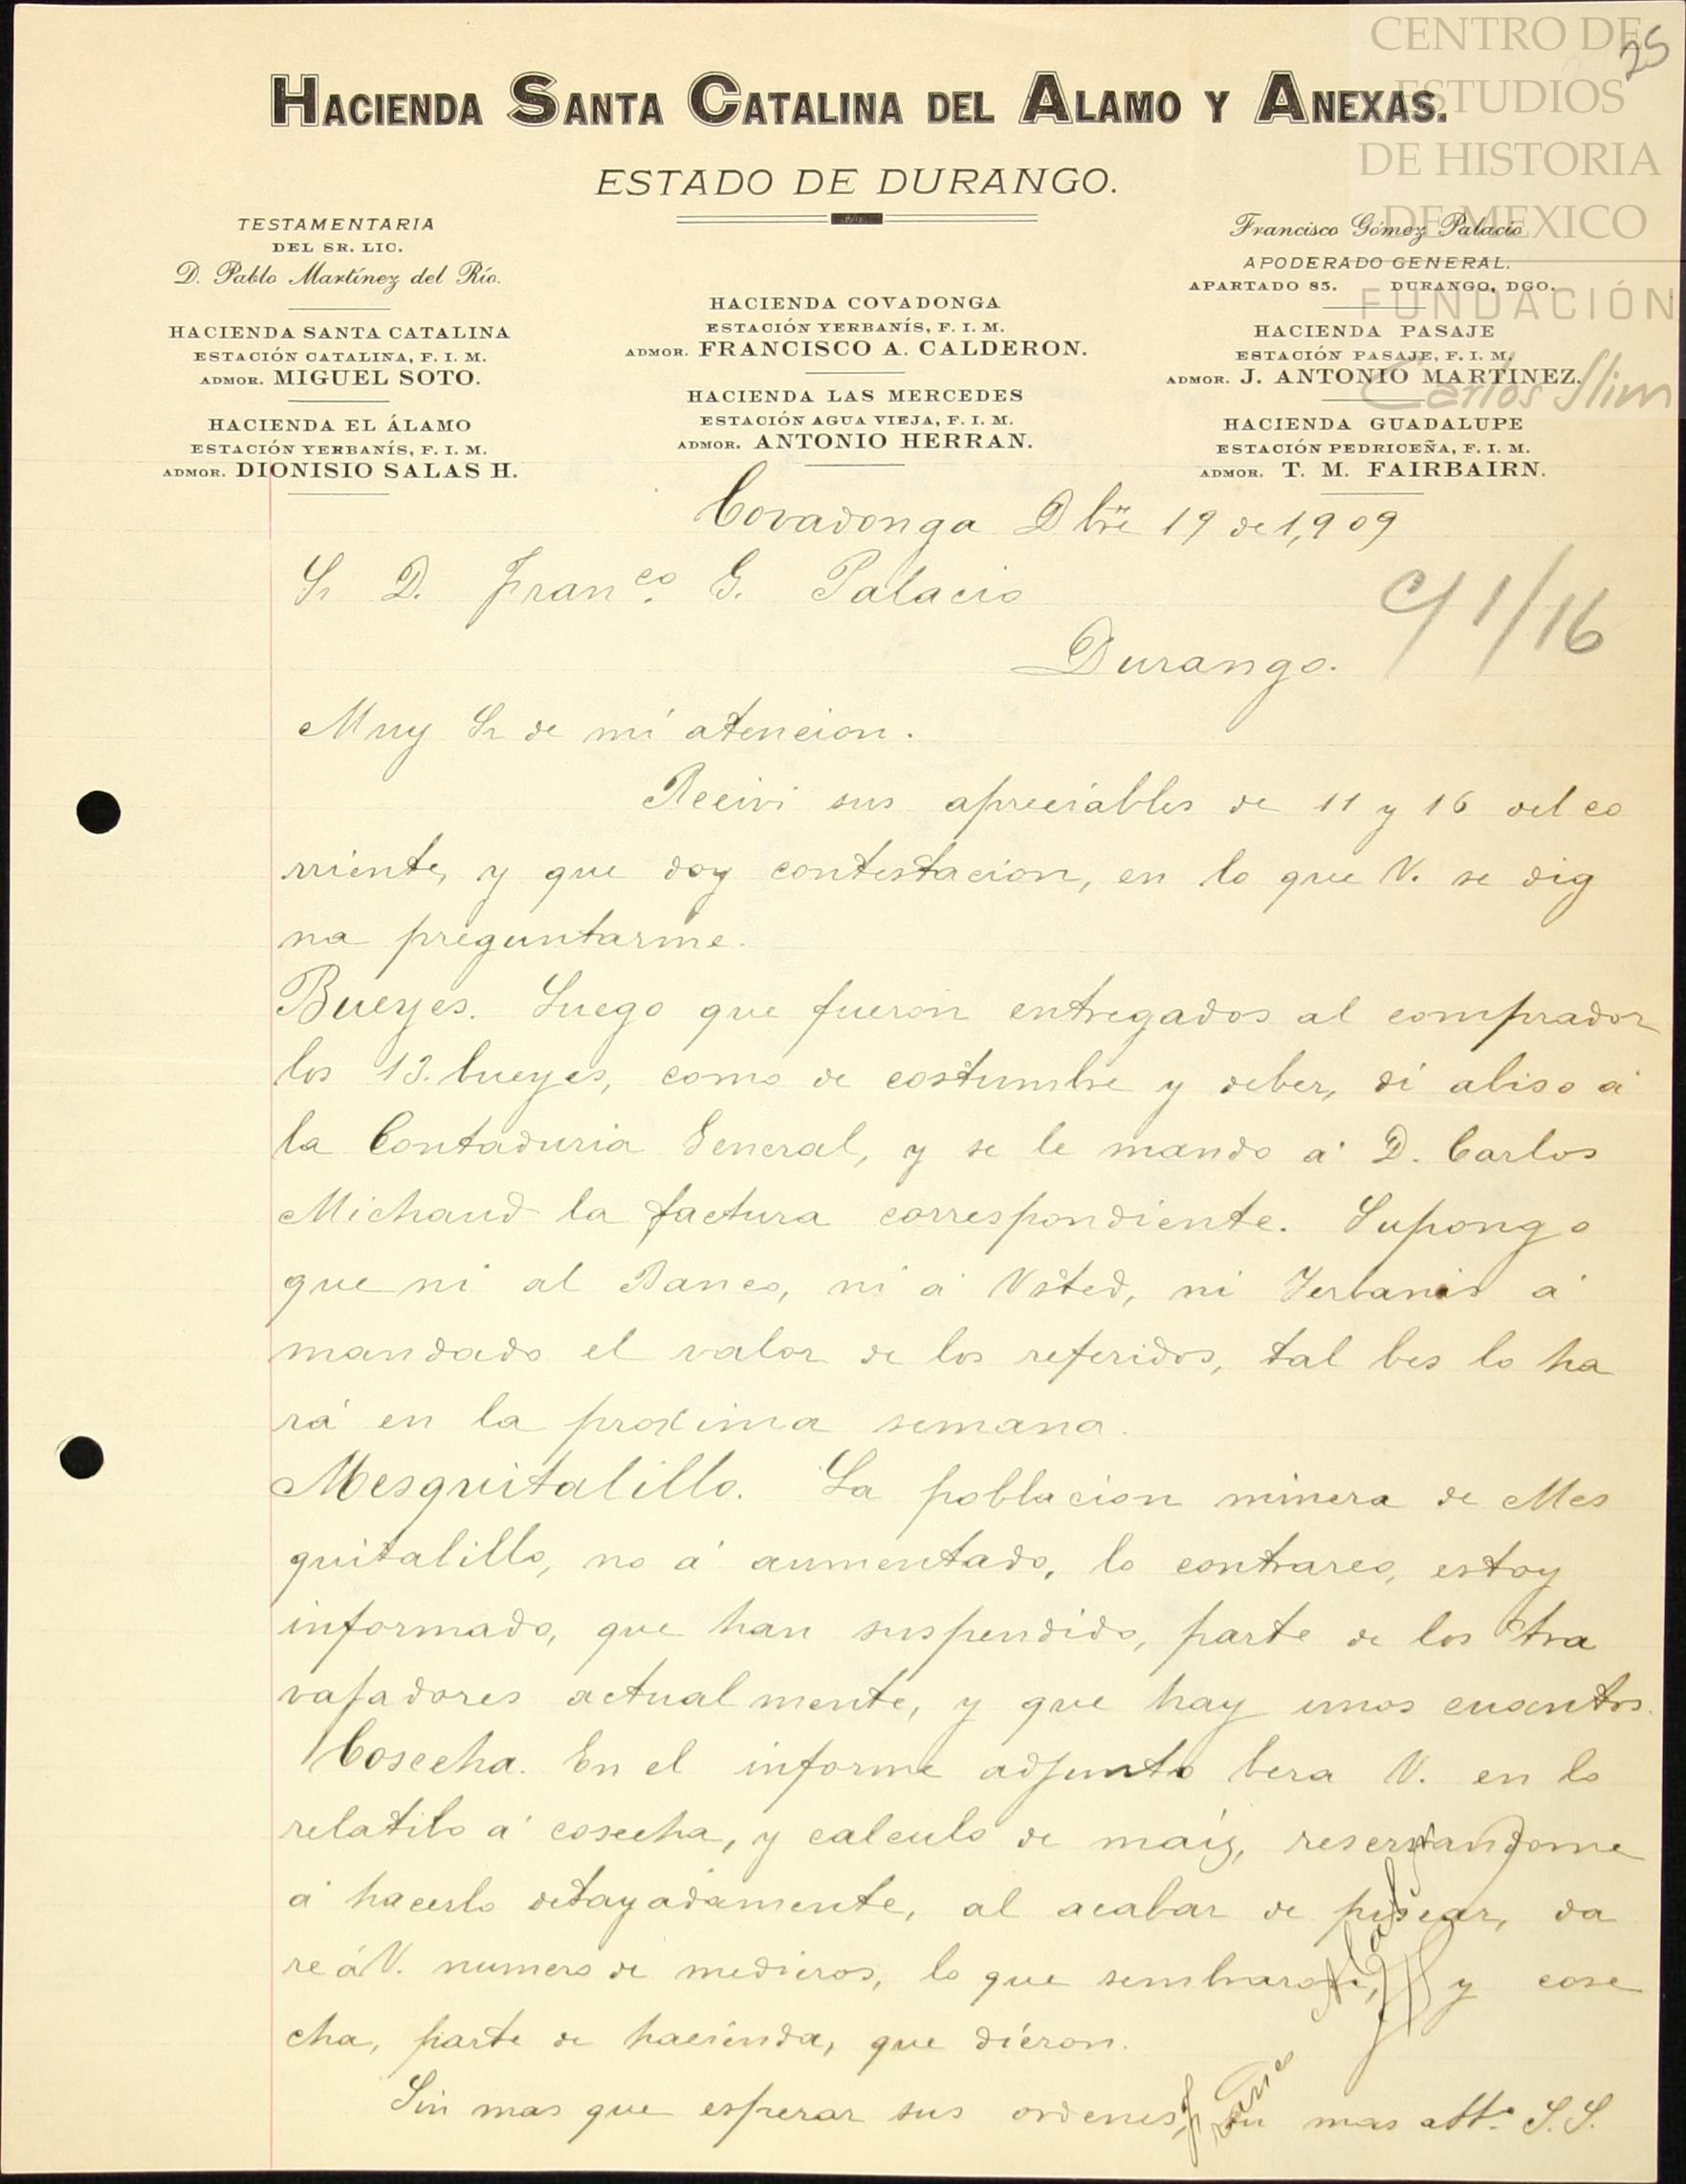 25
CENTRO DE
ESTUDIOS
DE HISTORIA
DE MEXICO
FUNDACIÓN
Carlos Slim
HACIENDA SANTA CATALINA DEL ALAMO Y ANEXAS.
ESTADO DE DURANGO.
TESTAMENTARIA
DEL SR. LIC.
D. Pablo Martínez del Río.
HACIENDA SANTA CATALINA
ESTACIÓN CATALINA, F. I. M.
ADMOR. MIGUEL SOTO.
HACIENDA EL ÁLAMO
ESTACIÓN YERBANÍS, F. I. M.
ADMOR. DIONISIO SALAS H.
HACIENDA COVADONGA
ESTACIÓN YERBANÍS, F. I. M.
ADMOR. FRANCISCO A. CALDERON.
HACIENDA LAS MERCEDES
ESTACIÓN AGUA VIEJA, F. I. M.
ADMOR. ANTONIO HERRAN.
Francisco Gómez Palacio
APODERADO GENERAL.
APARTADO 85. DURANGO, DGO.
HACIENDA PASAJE
ESTACIÓN PASAJE, F. I. M.
ADMOR. J. ANTONIO MARTINEZ.
HACIENDA GUADALUPE
ESTACIÓN PEDRICEÑA, F. I. M.
ADMOR. T. M. FAIRBAIRN.
Covadonga Dbre 19 de 1,909
Sr D. Franco. G. Palacio
c/ 1/16
Durango.
Muy Sr de mi atencion.
Recivi sus apreciables de 11 y 16 del co
rriente, y que doy contestacion, en lo que V. se dig
na preguntarme.
Bueyes. Luego que fueron entregados al comprador
los 13. bueyes, como de costumbre y deber, dí abiso á
la Contaduria General, y se le mando á D. Carlos
Michaud la factura correspondiente. Supongo
que ni al Banco, ni á Usted, ni Yerbanis á
mandado el valor de los referidos, tal bes lo ha
rá en la proxima semana.
Mesquitalillo. La poblacion minera de Mes
quitalillo, no á aumentado, lo contrareo, estoy
informado, que han suspendido, parte de los tra
vajadores actualmente, y que hay unos cuantos.
Cosecha. En el informe adjunto bera V. en lo
relatibo á cosecha, y calculo de maíz, reservandome
á hacerlo detayadamente, al acabar de piscar, da
re á V. numero de medieros, lo que sembraron, y cose
cha, parte de hacienda, que dieron.
Sin mas que esperar sus ordenes, su mas atto. S. S.